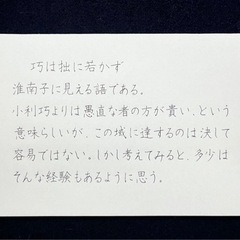 巧は拙に若かず
淮南子に見える語である。
小利巧よりは愚直な者の方が貴い、という
意味らしいが、この域に達するのは決して
容易ではない。しかし考えてみると、多少は
そんな経験もあるように思う。